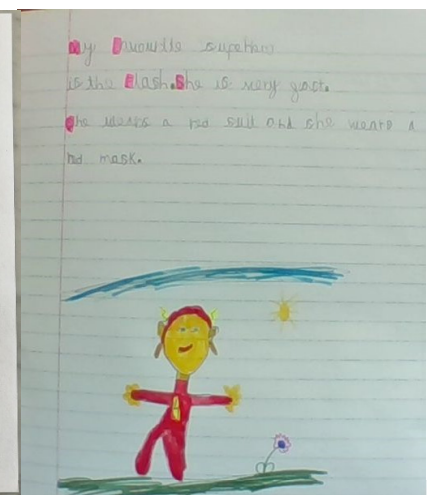 My Favourite superhero
is the Flash. She is very fast.
She wears a red suit and she wears a
red mask.